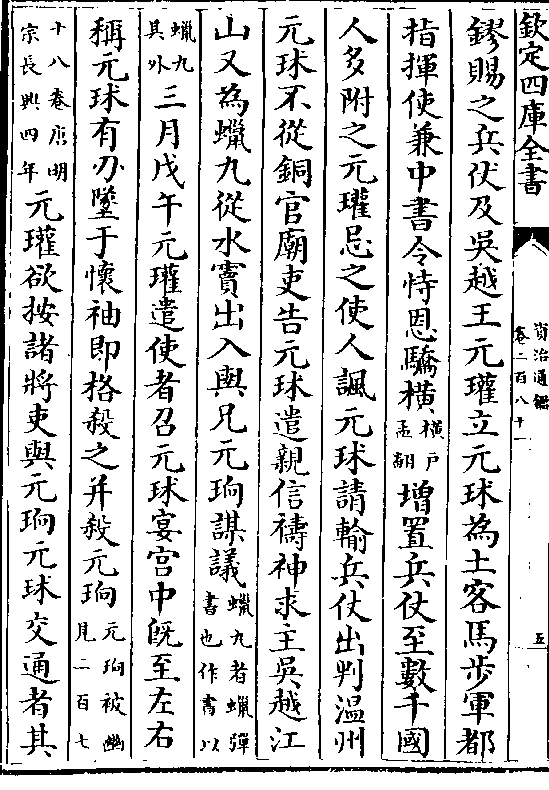 欽定四庫全書
資治通鑑
卷二百八十一
五
鏐賜之兵仗及吳越王元瓘立元球為土客馬步軍都
指揮使兼中書令恃恩驕橫橫戶孟翻增置兵仗至數千國
人多附之元瓘忌之使人諷元球請輸兵仗出判溫州
元球不從銅官廟吏告元球遣親信禱神求主吳越江
山又為蠟丸從水竇出入與兄元珦謀議蠟丸者蠟彈書也作書以
蠟丸其外三月戊午元瓘遣使者召元球宴宮中既至左右
稱元球有刃墜于懷袖即格殺之并殺元珦元珦被幽見二百七
十八卷唐明宗長興四年元瓘欲按諸將吏與元珦元球交通者其